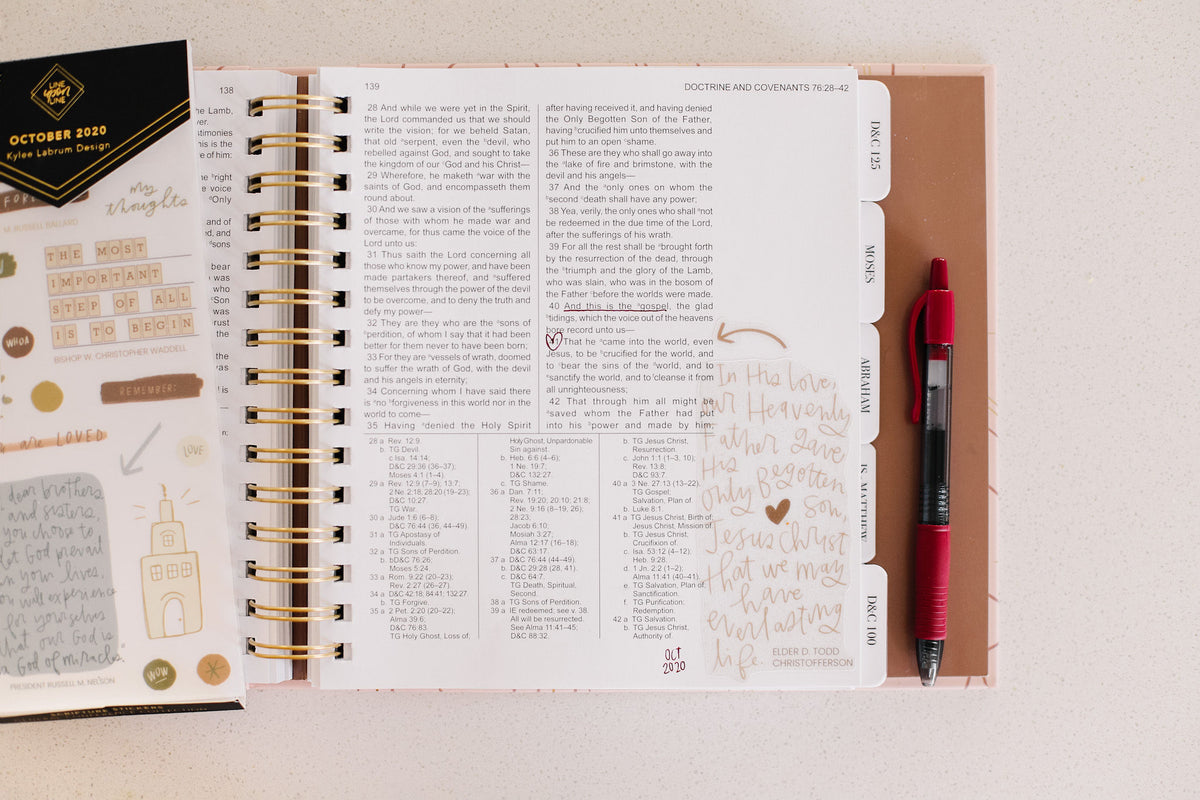 LINE
upon
LINE
OCTOBER 2020
Kylee Labrum Design
my
thoughts
M. RUSSELL BALLARD
THE MOST
IMPORTANT
STEP OF ALL
IS TO BEGIN
BISHOP W. CHRISTOPHER WADDELL
WHOA
REMEMBER:
are LOVED
LOVE
dear brothers
and sisters,
you choose to
let God prevail
in your lives,
you will experience
for yourselves
that our God is
a God of miracles."
PRESIDENT RUSSELL M. NELSON
WOW
SCRIPTURE STICKERS
138
139
DOCTRINE AND COVENANTS 76:28–42
28 And while we were yet in the Spirit,
the Lord commanded us that we should
write the vision; for we beheld Satan,
that old ᵃserpent, even the ᵇdevil, who
rebelled against God, and sought to take
the kingdom of our ᶜGod and his Christ—
29 Wherefore, he maketh ᵃwar with the
saints of God, and encompasseth them
round about.
30 And we saw a vision of the ᵃsufferings
of those with whom he made war and
overcame, for thus came the voice of the
Lord unto us:
31 Thus saith the Lord concerning all
those who know my power, and have been
made partakers thereof, and ᵃsuffered
themselves through the power of the devil
to be overcome, and to deny the truth and
defy my power—
32 They are they who are the ᵃsons of
ᵇperdition, of whom I say that it had been
better for them never to have been born;
33 For they are ᵃvessels of wrath, doomed
to suffer the wrath of God, with the devil
and his angels in eternity;
34 Concerning whom I have said there
is ᵃno ᵇforgiveness in this world nor in the
world to come—
35 Having ᵃdenied the Holy Spirit
after having received it, and having denied
the Only Begotten Son of the Father,
having ᵇcrucified him unto themselves and
put him to an open ᶜshame.
36 These are they who shall go away into
the ᵃlake of fire and brimstone, with the
devil and his angels—
37 And the ᵃonly ones on whom the
ᵇsecond ᶜdeath shall have any power;
38 Yea, verily, the only ones who shall ᵃnot
be redeemed in the due time of the Lord,
after the sufferings of his wrath.
39 For all the rest shall be ᵃbrought forth
by the resurrection of the dead, through
the ᵇtriumph and the glory of the Lamb,
who was slain, who was in the bosom of
the Father ᶜbefore the worlds were made.
40 And this is the ᵃgospel, the glad
ᵇtidings, which the voice out of the heavens
bore record unto us—
41 That he ᵃcame into the world, even
Jesus, to be ᵇcrucified for the world, and
to ᶜbear the sins of the ᵈworld, and to
ᵉsanctify the world, and to ᶠcleanse it from
all unrighteousness;
42 That through him all might be
ᵃsaved whom the Father had put
into his ᵇpower and made by him;
28 a Rev. 12:9.
b TG Devil.
c Isa. 14:14;
D&C 29:36 (36–37);
Moses 4:1 (1–4).
29 a Rev. 12:9 (7–9); 13:7;
2 Ne 2:18; 28:20 (19–23);
D&C 10:27.
TG War.
30 a Jude 1:6 (6–8);
D&C 76:44 (36, 44–49).
31 a TG Apostasy of
Individuals.
32 a TG Sons of Perdition.
b bD&C 76:26;
Moses 5:24.
33 a Rom. 9:22 (20–23);
Rev. 2:27 (26–27).
34 a D&C 42:18; 84:41; 132:27.
b TG Forgive.
35 a 2 Pet. 2:20 (20–22);
Alma 39:6;
D&C 76:83.
TG Holy Ghost, Loss of;
Holy Ghost, Unpardonable
Sin against.
b. Heb. 6:6 (4–6);
1 Ne. 19:7;
D&C 132:27.
c. TG Shame.
36 a Dan. 7:11;
Rev. 19:20; 20:10; 21:8;
2 Ne. 9:16 (8–19, 26);
28:23;
Jacob 6:10;
Mosiah 3:27;
Alma 12:17 (16–18);
D&C 63:17.
37 a D&C 76:44 (44–49).
b. D&C 29:28 (28, 41).
c. D&C 64:7.
TG Death, Spiritual,
Second.
38 a TG Sons of Perdition.
39 a IE redeemed; see v. 38.
All will be resurrected.
See Alma 11:41–45;
D&C 88:32.
b. TG Jesus Christ,
Resurrection.
c. John 1:1 (1–3, 10);
Rev. 13:8;
D&C 93:7.
40 a 3 Ne. 27:13 (13–22).
TG Gospel;
Salvation, Plan of.
b. Luke 8:1.
41 a TG Jesus Christ, Birth of;
Jesus Christ, Mission of.
b. TG Jesus Christ,
Crucifixion of.
c. Isa. 53:12 (4–12);
Heb. 9:28.
d. 1 Jn. 2:2 (1–2);
Alma 11:41 (40–41).
e. TG Salvation, Plan of;
Sanctification.
f. TG Purification;
Redemption.
42 a TG Salvation.
b. TG Jesus Christ,
Authority of.
OCT
2020
In His love,
our Heavenly
Father gave
His
only Begotten
son,
Jesus Christ
that we may
have
everlasting
life.
ELDER D. TODD
CHRISTOFFERSON
D&C 125
MOSES
ABRAHAM
JS MATTHEW
D&C 100